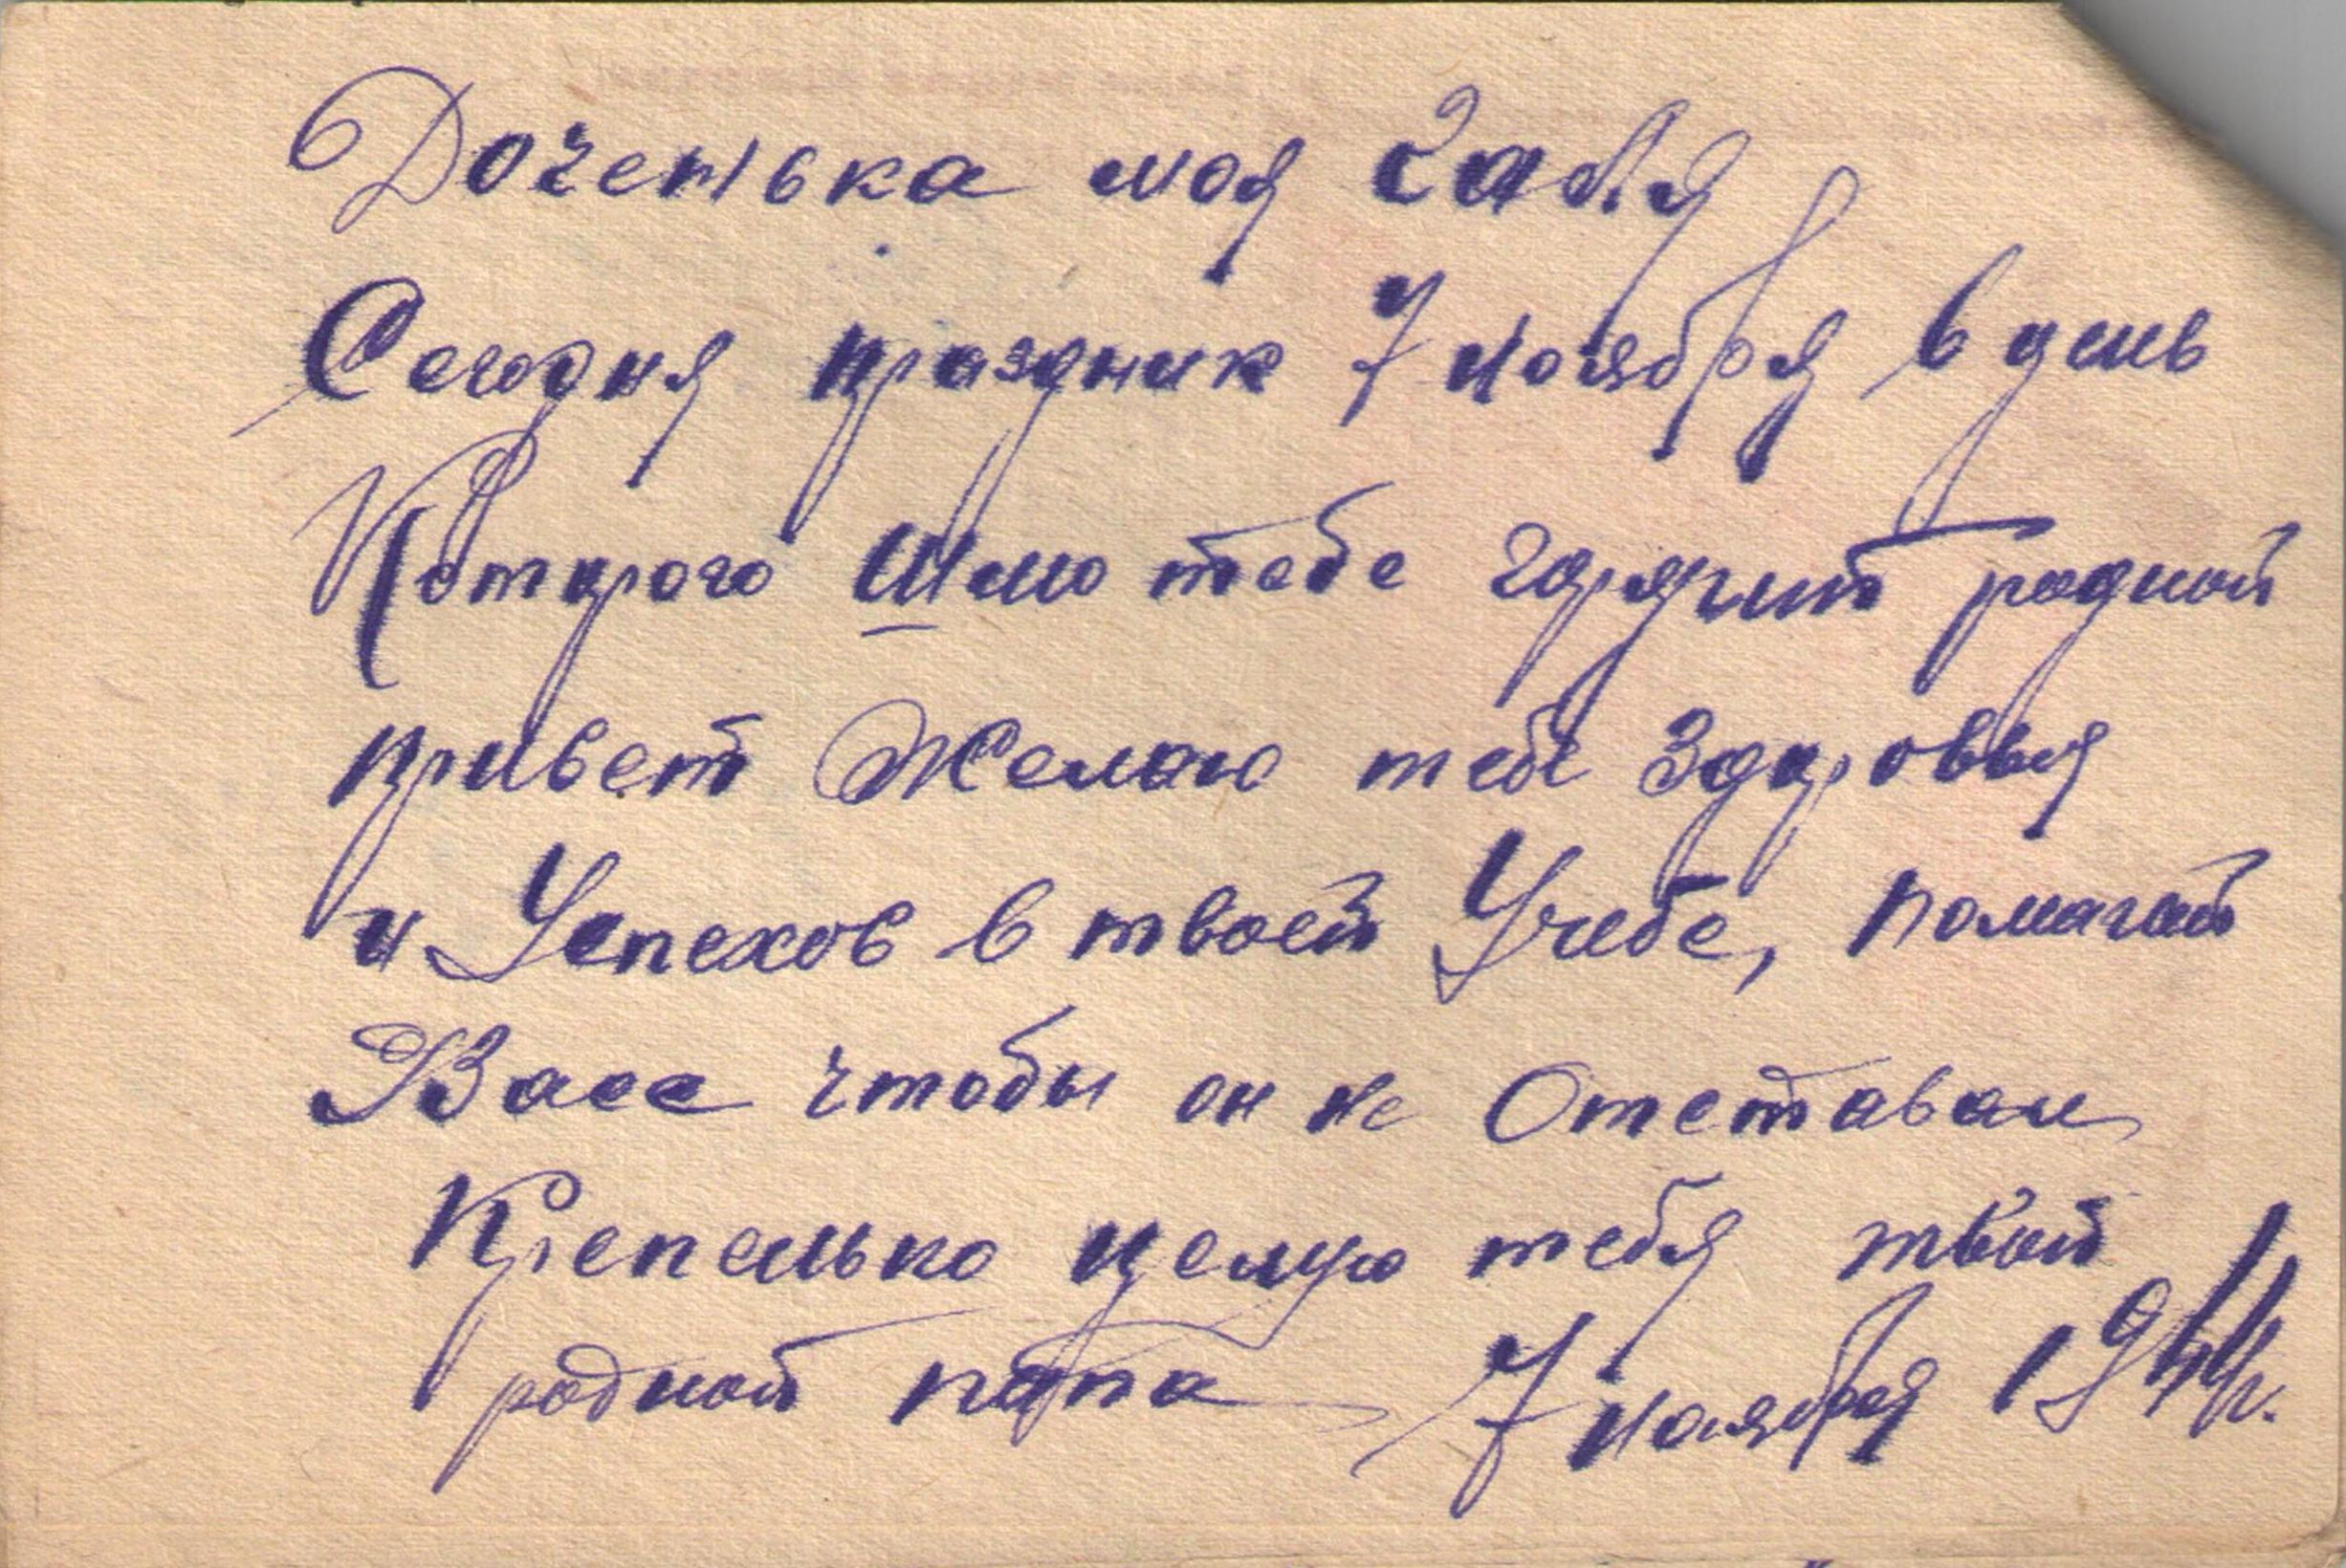 Доченька моя Галя
Сегодня праздник 7 ноября в день
Которого Шлю тебе горячий родной
привет Желаю тебе Здоровья
и Успехов в твоей Учебе, помагай
Васе чтобы он не Отставал
Крепенько целую тебя твой
родной папа 7 ноября 1944г.